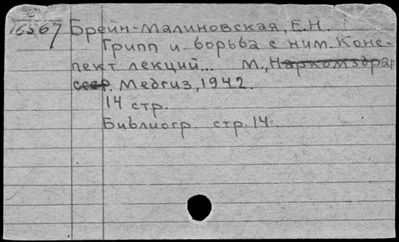 16567 Брейн-Малиновская, Е.Н.
Грипп и борьба с ним. Конс-
пект лекций... М., Наркомздрав
ссср. Медгиз, 1942.
14 стр.
Библиогр. стр 14.